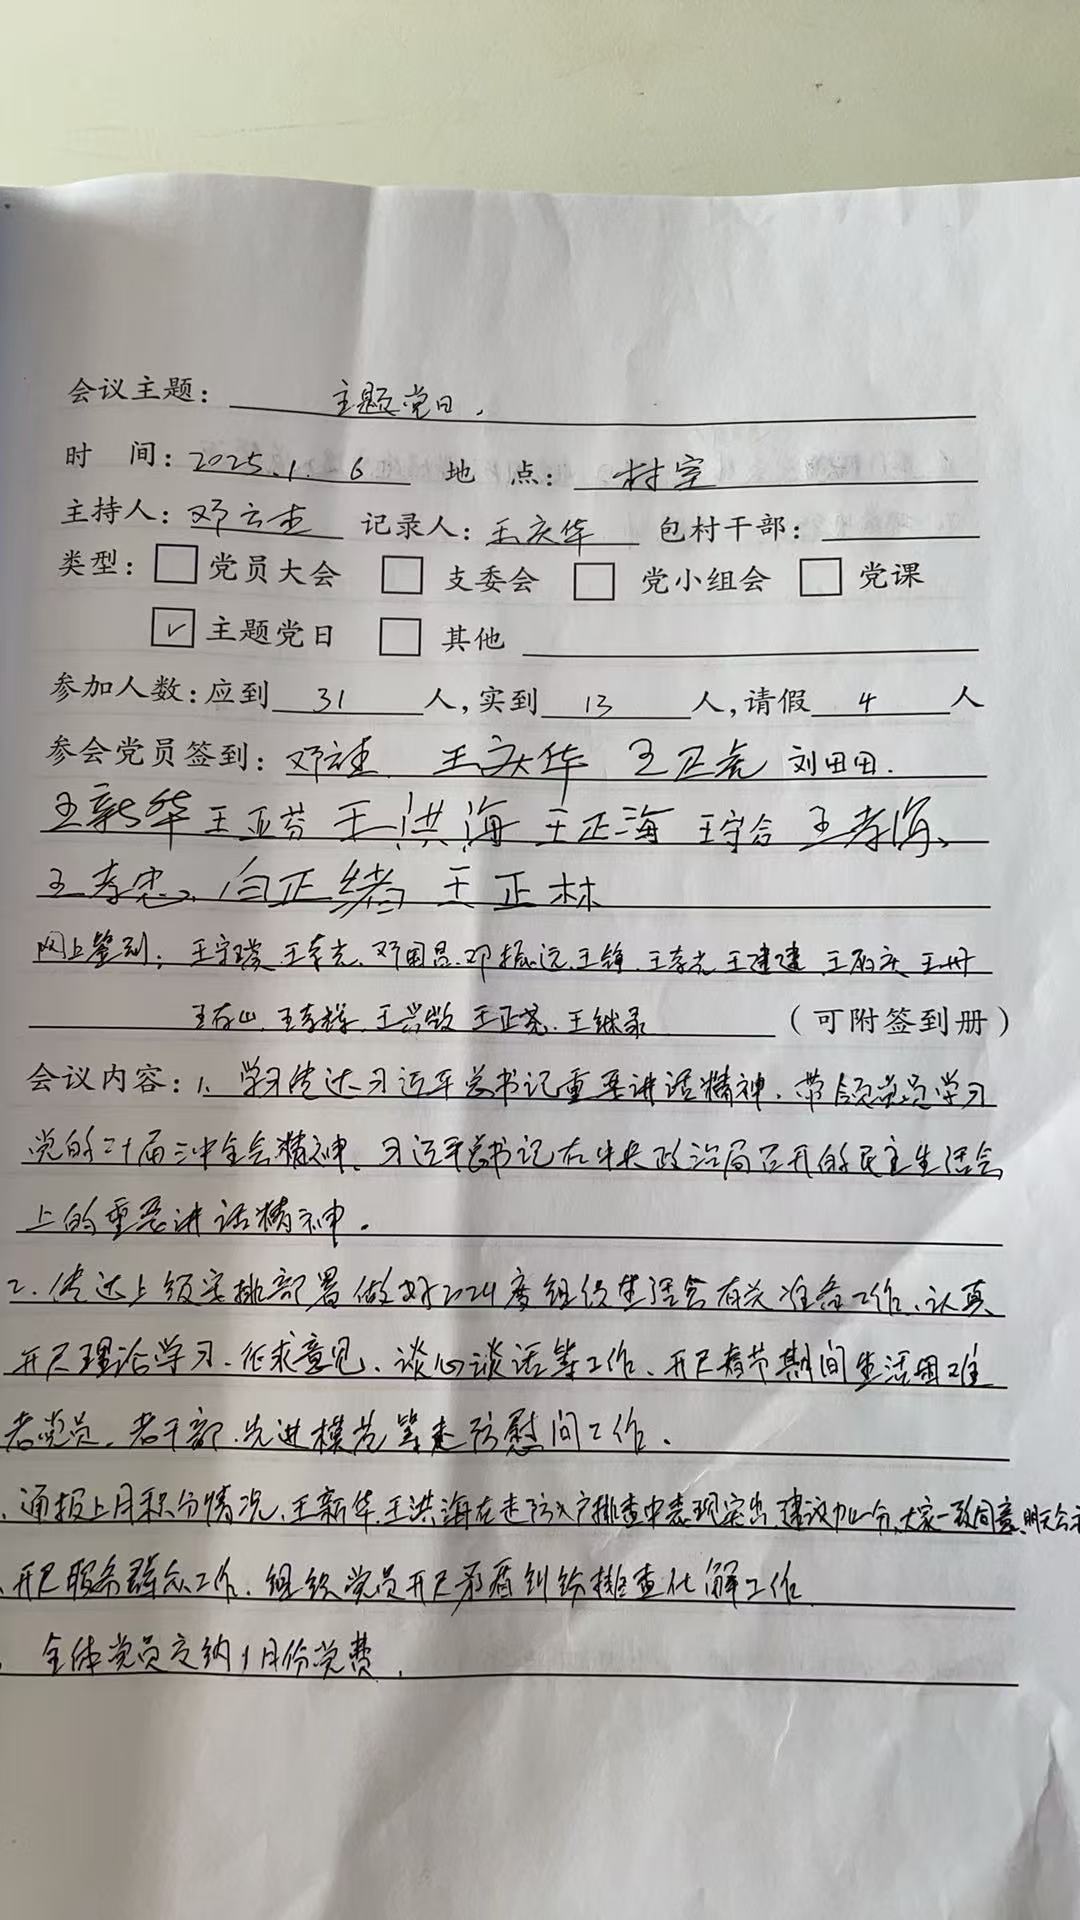 会议主题： 主题党日，
时 间：2025.1.6 地 点： 村室
主持人：邓云杰 记录人：王庆华 包村干部：
类型： 党员大会 支委会 党小组会 党课
✓ 主题党日 其他
参加人数：应到 31 人，实到 13 人，请假 4 人
参会党员签到：邓云杰 王庆华 王正虎 刘田田.
王新华 王亚芬 王洪海 王正海 王守合 王孝海、
王孝忠、白正绪 王正林
网上签到：王守璞、王孝光、邓国昌、邓振远、王锋、王孝光 王建建、王册
王存山、王孝辉、王兴散 王正亮、王继录 （可附签到册）
会议内容：1、学习传达习近平总书记重要讲话精神，带领党员学习
党的二十届三中全会精神、习近平总书记在中央政治局召开的民主生活会
上的重要讲话精神。
2、传达上级安排部署做好2024度组织生活会有关准备工作、认真
开展理论学习、征求意见、谈心谈话等工作、开展春节期间生活困难
老党员、老干部、先进模范等走访慰问工作。
、通报上月积分情况、王新华、王洪海在走访入户排查中表现突出，建议加一分、大家一致同意、明天公示
、开展服务群众工作、组织党员开展矛盾纠纷排查化解工作
、全体党员交纳1月份党费，